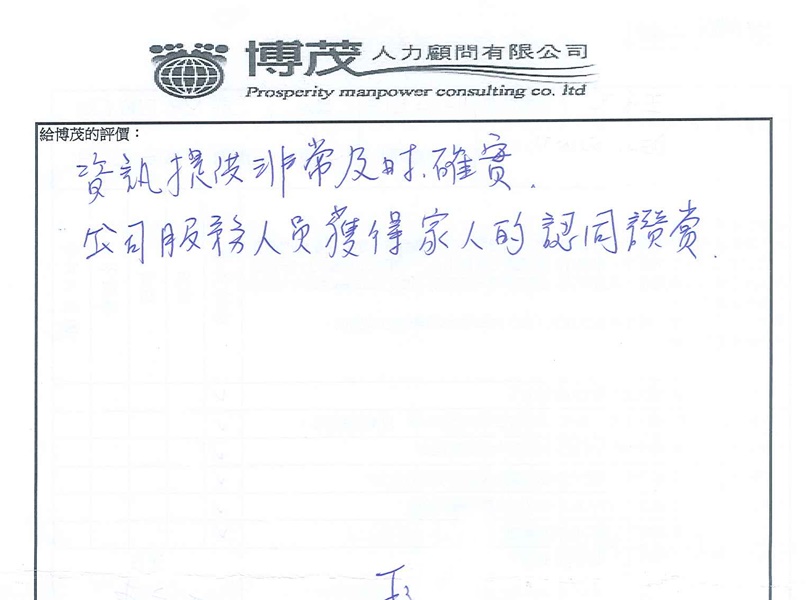 博茂人力顧問有限公司
Prosperity manpower consulting co. ltd
給博茂的評價：
資訊提供非常及時、確實.
公司服務人員獲得家人的認同讚賞.